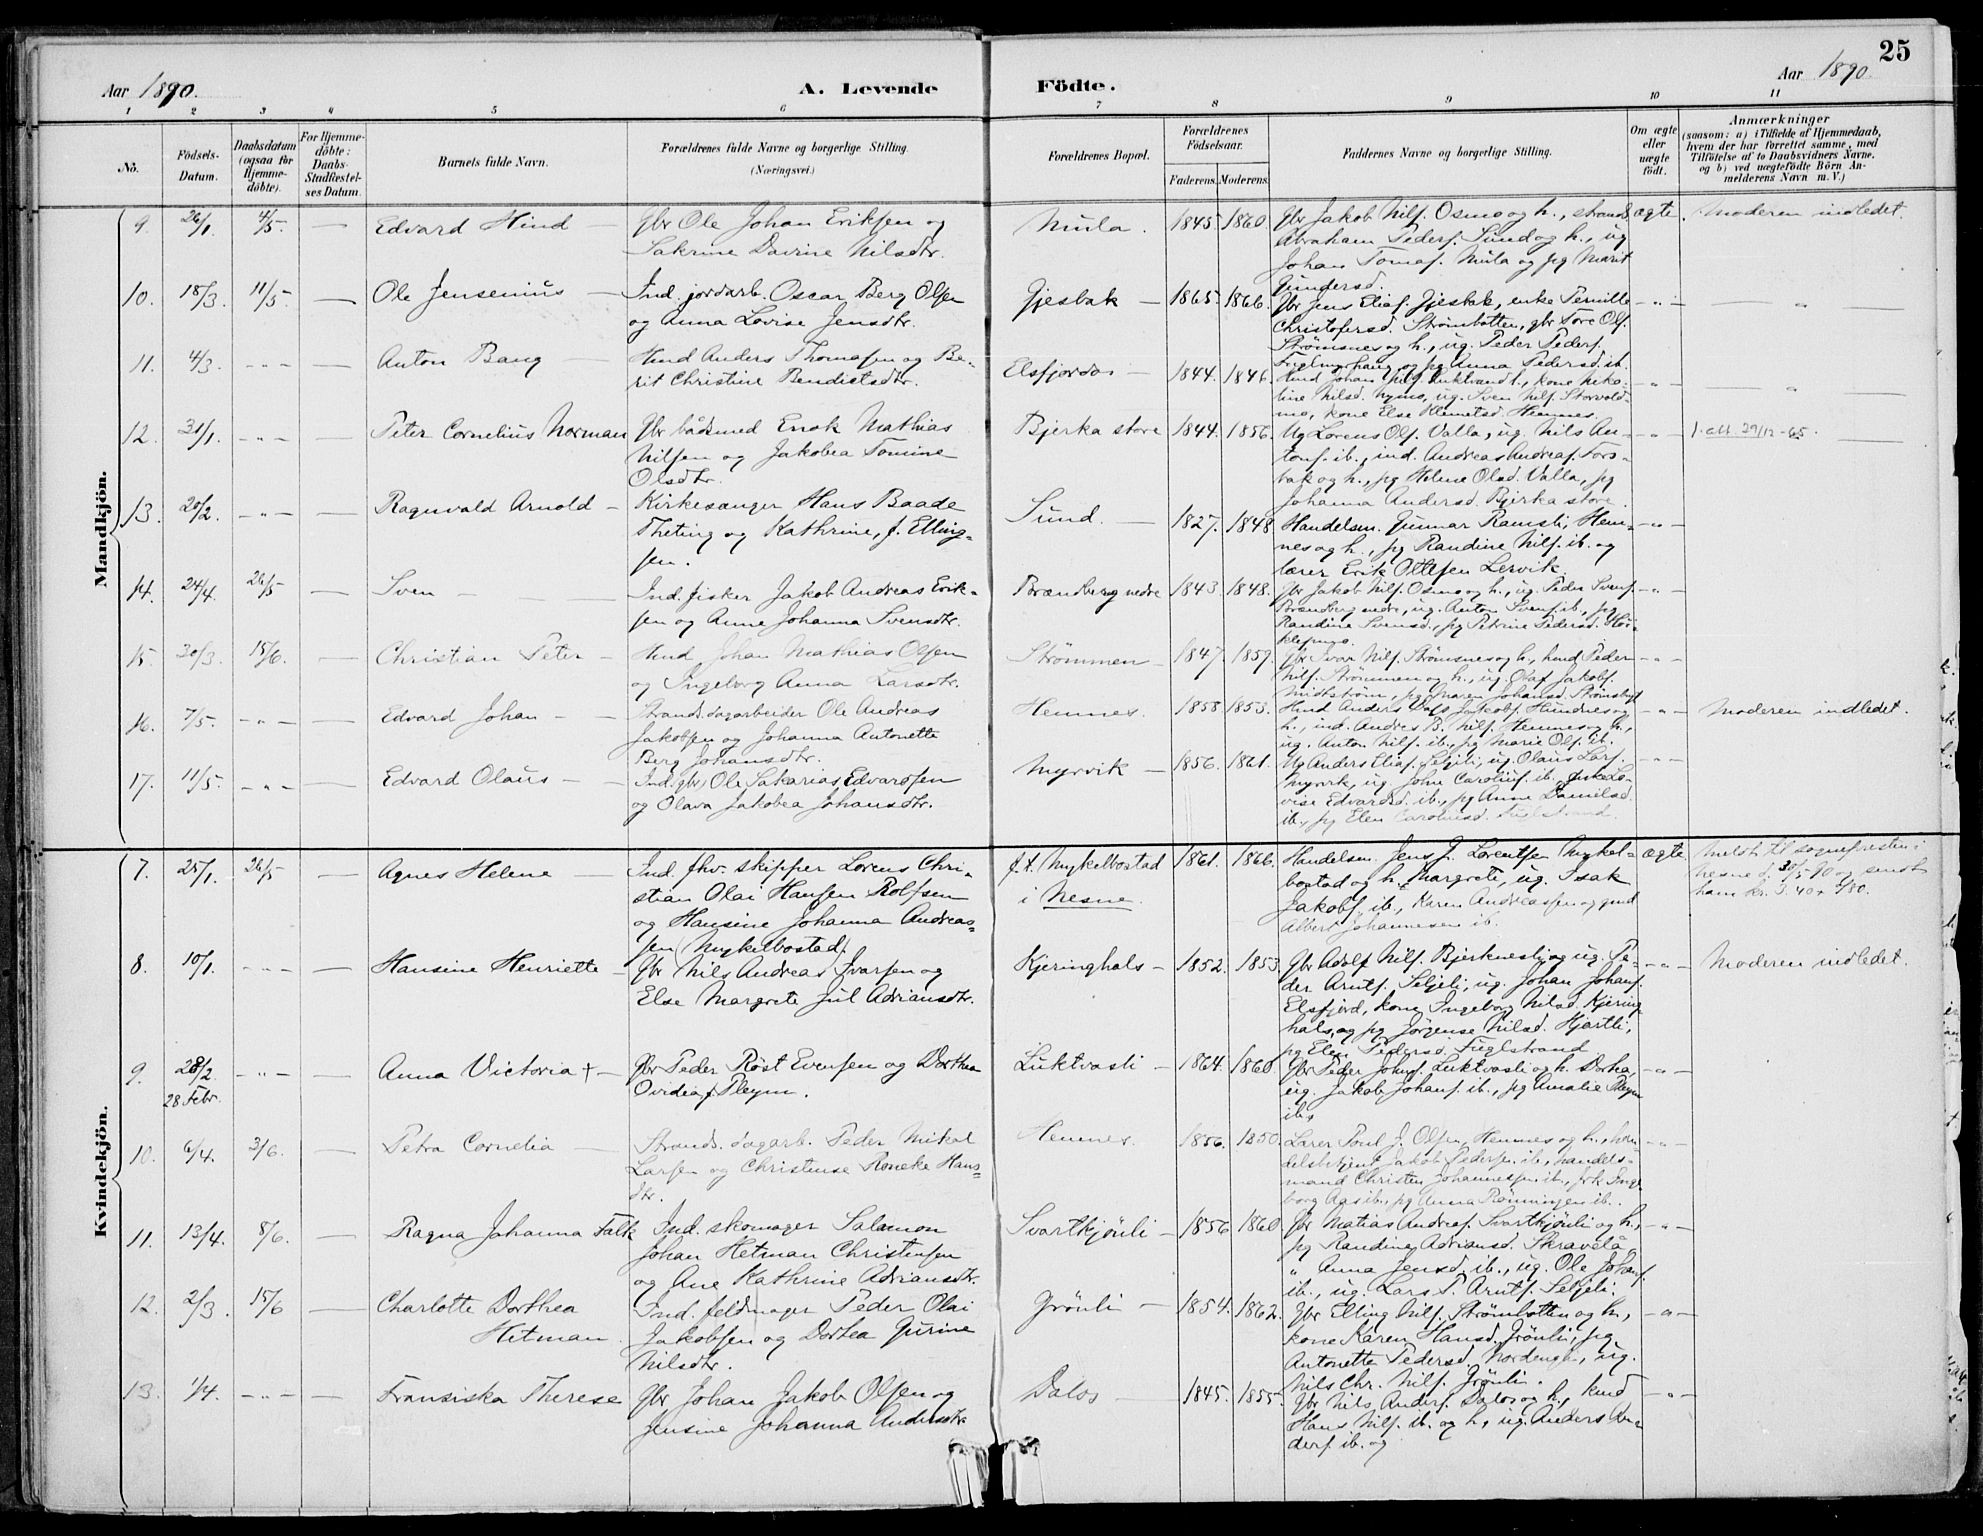 25
Aar 1890.
A. Levende Födte.
Aar 1890.
1 2 3 4 5 6 7 8 9 10 11
No.
Födsels-Datum.
Daabsdatum (ogsaa för Hjemme-döbte).
For Hjemme-döbte: Daabs-Stadfæstel-ses Datum.
Barnets fulde Navn.
Forældrenes fulde Navne og borgerlige Stilling. (Næringsvei.)
Forældrenes Bopæl.
Forældrenes Födselsaar.
Faderens. Moderens.
Faddernes Navne og borgerlige Stilling.
Om ægte eller uægte födt.
Anmærkninger
(saasom: a) i Tilfælde af Hjemmedaab,
hvem der har forrettet samme, med
Tilföielse af to Daabsvidners Navne,
og b) ved uægtefödte Börn An-
melderens Navn m. V.)
Mandkjön.
9. 26/1 4/5 — Edvard Hind — Gbr Ole Johan Eriksen og
Sakrine Davine Nilsdtr.
Mula. 1845. 1860. Gbr Jakob Nilss. Osmo og h., strands.
Abraham Peders. Sund og h., ug
Johan Tomas. Mula og pg Marit
Gundersd.
ægte. Moderen indledet.
10. 18/3. 11/5. — Ole Jensenius — Ind. jordarb. Oscar Berg Olsen
og Anna Lovise Jensdtr.
Gjesbak — 1865. 1866. Gbr Jens Elias. Gjesbak, enke Pernille
Christofersd. Strømbotten, gbr Tore Ols.
Strømsnes og h., ug. Peder Peders.
og pg Anna Pedersd. ib.
— " — — " —
11. 4/3. — " — Anton Bang — Hmd Anders Thomassen og Be-
rit Christine Bendictsdtr.
Elsfjordos — 1844. 1846. Hmd Johan Luktvand l., kone Niko-
line Nilsd. Nymo, ug. Sven Nils. Storvold-
mo, kone Else Klemetsd. Hemnes.
— " — — " —
12. 31/1. — " — Peter Cornelius Norman Gbr bådsmed Enok Mathias
Nilsen og Jakobea Tomine
Olsdtr.
Bjerka store 1844. 1856. Ug Lorens Ols. Valla, ug. Nils An-
tons. ib., ind. Andreas Andreas. Fors-
bak og h., pg Helene Olsd. Valla, pg
Johanna Andersd. Bjerka store.
— " — 1. att. 29/12-65.
13. 20/2. — " — Ragnvald Arnold — Kirkesanger Hans Baade
Theting og Kathrine, f. Elling-
sen.
Sund. — 1827. 1848 Handelsm. Gunnar Ramsli, Hem-
nes og h., pg Randine Nils. ib. og
lærer Erik Ottesen Lervik.
— " —
14. 24/4. 26/5 — Sven — Ind. fisker Jakob Andreas Erik-
sen og Anne Johanna Svensdtr.
Brændberg nedre 1843. 1848. Gbr Jakob Nils. Osmo og h., ug. Peder Svens.
Brændberg nedre, ug. Anton Svens. ib., pg
Randine Svensd., pg Petrine Pedersd.
— " —
15 30/3. 15/6. — Christian Peter — Hmd Johan Mathias Olsen
og Ingeborg Anna Larsdtr.
Strømmen — 1847. 1859. Gbr Ivar Nils. Strømsnes og h., hmd Peder
Nils. Strømmen og h., ug. Olaf Jakobs.
Midtstrøm, pg Maren Johansd.
— " —
16. 7/5. — " — Edvard Johan — Strands. dagarbeider Ole Andreas
Jakobsen og Johanna Antonette
Berg Johansdtr.
Hemnes. 1858 1853. Hmd Anders Jakobs. og
h., ind. Andreas B. Nils. Hemnes og h.,
ug. Anton Nils. ib., pg Marie Ols. ib.
— " — Moderen indledet.
17. 11/5. — " — Edvard Olaus — Ind. (gbr) Ole Sakarias Edvardsen
og Olava Jakobea Johansdtr.
Myrvik — 1856. 1861. Ug Anders Elias. Seljeli, ug. Olaus Lars.
Myrvik, ug. John Carolius. ib., Lo-
vise Edvardsd. ib., pg Anne Danielsd.
ib., pg Elen Carolinsd. Fuglstrand.
— " —
Kvindekjön.
7. 25/1. 26/5 — Agnes Helene — Ind. fhv. skipper Lorens Chri-
stian Olai Hansen Rolfsen
og Hansine Johanna Andreas-
sen (Mykelbostad).
f.t. Mykelbostad
i Nesne.
1861. 1866. Handelsm. Jens J. Lorentsen Mykel-
bostad og h. Margrete, ug. Isak
Jakobs. ib., Karen Andreassen og gmd
Albert Johannesen ib.
ægte. Meldt til sognepresten i
Nesne d. 30/5 90 og sendt
ham kr. 3.40 + 4/80.
8. 10/1. — " — Hansine Henriette — Gbr Nils Andreas Ivarsen og
Else Margrete Jul Adriansdtr.
Kjeringhals — 1852. 1853. Gbr Adolf Nils. Bjerknesli og ug. Pe-
der Arnts. Seljeli, ug. Johan Johans.
Elsfjord, kone Ingeborg Nilsd. Kjering-
hals, og pg Jørgense Nilsd. Hjartli,
pg Elen Pedersd. Fuglstrand
— " — Moderen indledet.
9. 28/2.
28 Febr.
— " — Anna Victoria † — Gbr Peder Røst Evensen og Dorthea
Ovidea f. Pleym.
Luktvasli — 1864. 1860. Gbr Peder Johns. Luktvasli og h. Dorthea,
ug. Jakob Johans. ib., pg Amalie Pleym
ib.
— " —
10. 6/4. 3/6. — Petra Cornelia — Strands. dagarb. Peder Mikal
Larsen og Christense Roneke Hans-
dtr.
Hemnes. 1856. 1850. Lærer Poul J. Olsen, Hemnes og h., han-
delsbetjent Jakob Pedersen ib., handels-
mand Christen Johannessen ib., frk Inge-
borg Aas ib., pg Anna Rønningen ib.
— " —
11. 13/4. 8/6. — Ragna Johanna Falk Ind. skomager Salamon
Johan Hetman Christensen
og Ane Kathrine Adriansdtr.
Svartkjönli — 1856 1860 Gbr Matias Andreas. Svartkjönli og h.,
pg Randine Adriansd. Skravelå
" Anna Jensd. ib., ug. Ole Johans.
ib., ug. Lars P. Arnts. Seljeli.
— " —
12. 2/3. 15/6 — Charlotte Dorthea
Hetman.
Ind. feldmager Peder Olai
Jakobsen og Dortea Gurine
Nilsdtr.
Grönli — 1854. 1862. Gbr Elling Nils. Strömbotten og h.,
kone Karen Hansd. Grönli, pg.
Antonette Pedersd. Nordengh, ug.
Nils Chr. Nils. Grönli.
— " —
13. 1/4. — " — Fransiska Therese Gbr Johan Jakob Olsen og
Jensine Johanna Andersdtr
Dalos — 1845. 1855. Gbr Nils Anders. Dalos og h., hmd
Hans Nils. ib. og h., ug. Anders An-
ders. ib. og
— " —